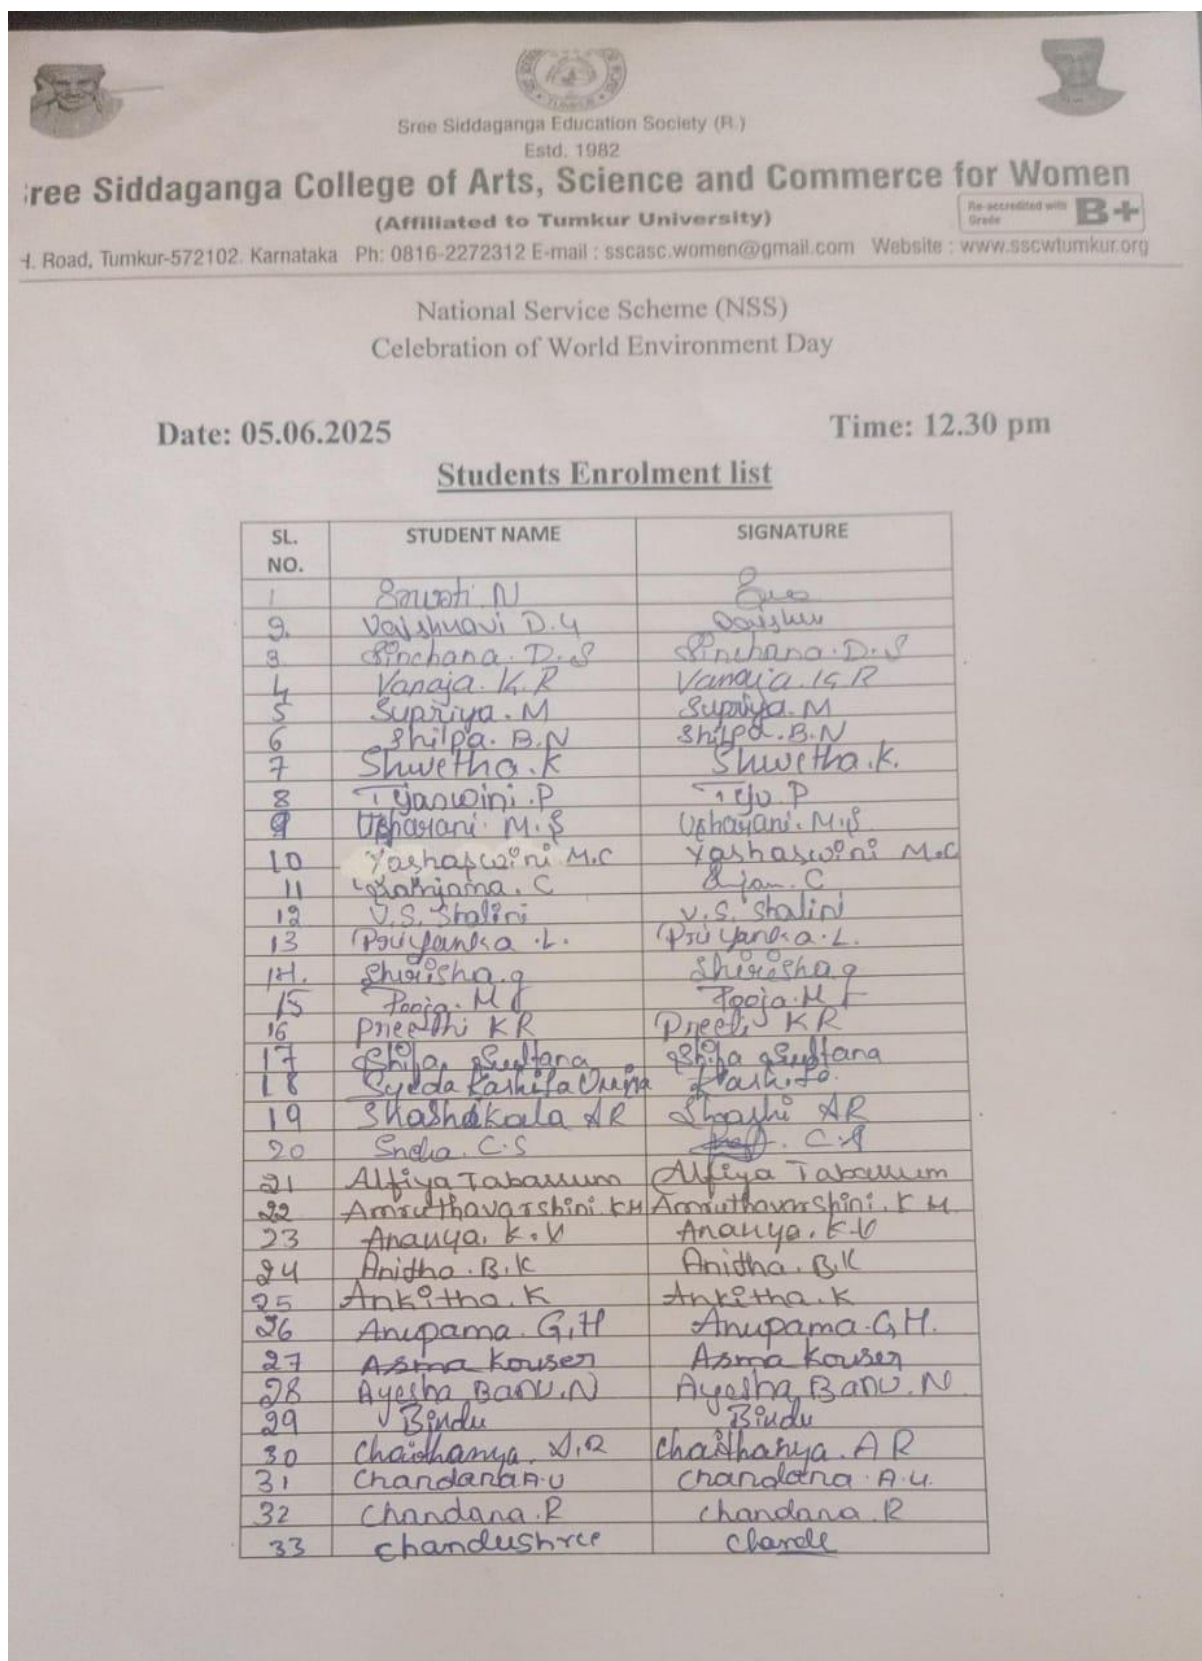 TUMKUR
Sree Siddaganga Education Society (R.)
Estd. 1982
ree Siddaganga College of Arts, Science and Commerce for Women
(Affiliated to Tumkur University)
Re-accredited with Grade B+
H. Road, Tumkur-572102. Karnataka Ph: 0816-2272312 E-mail : sscasc.women@gmail.com Website : www.sscwtumkur.org
National Service Scheme (NSS)
Celebration of World Environment Day
Date: 05.06.2025 Time: 12.30 pm
Students Enrolment list
SL. NO. STUDENT NAME SIGNATURE
1 N
2. D.Y
3 Sinchana. D.S Sinchana. D.S
4 Vanaja. K.R Vanaja. K R
5 Supriya. M Supriya. M
6 Shilpa. B.N Shilpa. B.N
7 Shwetha. K Shwetha. K.
8 Tejaswini. P Teju. P
9 Usharani. M.S Usharani. M.S
10 Yashaswini M.C Yashaswini M.C
11 C C
12 V.S. Shalini V.S. Shalini
13 Priyanka. L. Priyanka. L.
14. Shirisha.g Shirisha g
15 Pooja. M Pooja. M
16 Preethi KR Preeti KR
17 Shifa Sultana Shifa Sultana
18 Syeda Kashifa Kashifa
19 Shashikala AR Shashi AR
20 C.S C.S
21 Alfiya Tabassum Alfiya Tabassum
22 Amruthavarshini. K M Amruthavarshini. K M
23 Ananya. K.V Ananya. K.V
24 Anitha. B.K Anitha. B.K
25 Ankitha. K Ankitha. K
26 Anupama. G.H Anupama. G H.
27 Asma Kouser Asma Kouser
28 Ayesha Banu. N Ayesha Banu. N
29 Bindu Bindu
30 Chaithanya. A.R Chaithanya. A R
31 Chandana A.U Chandana. A.U.
32 Chandana. R Chandana. R
33 Chandushree